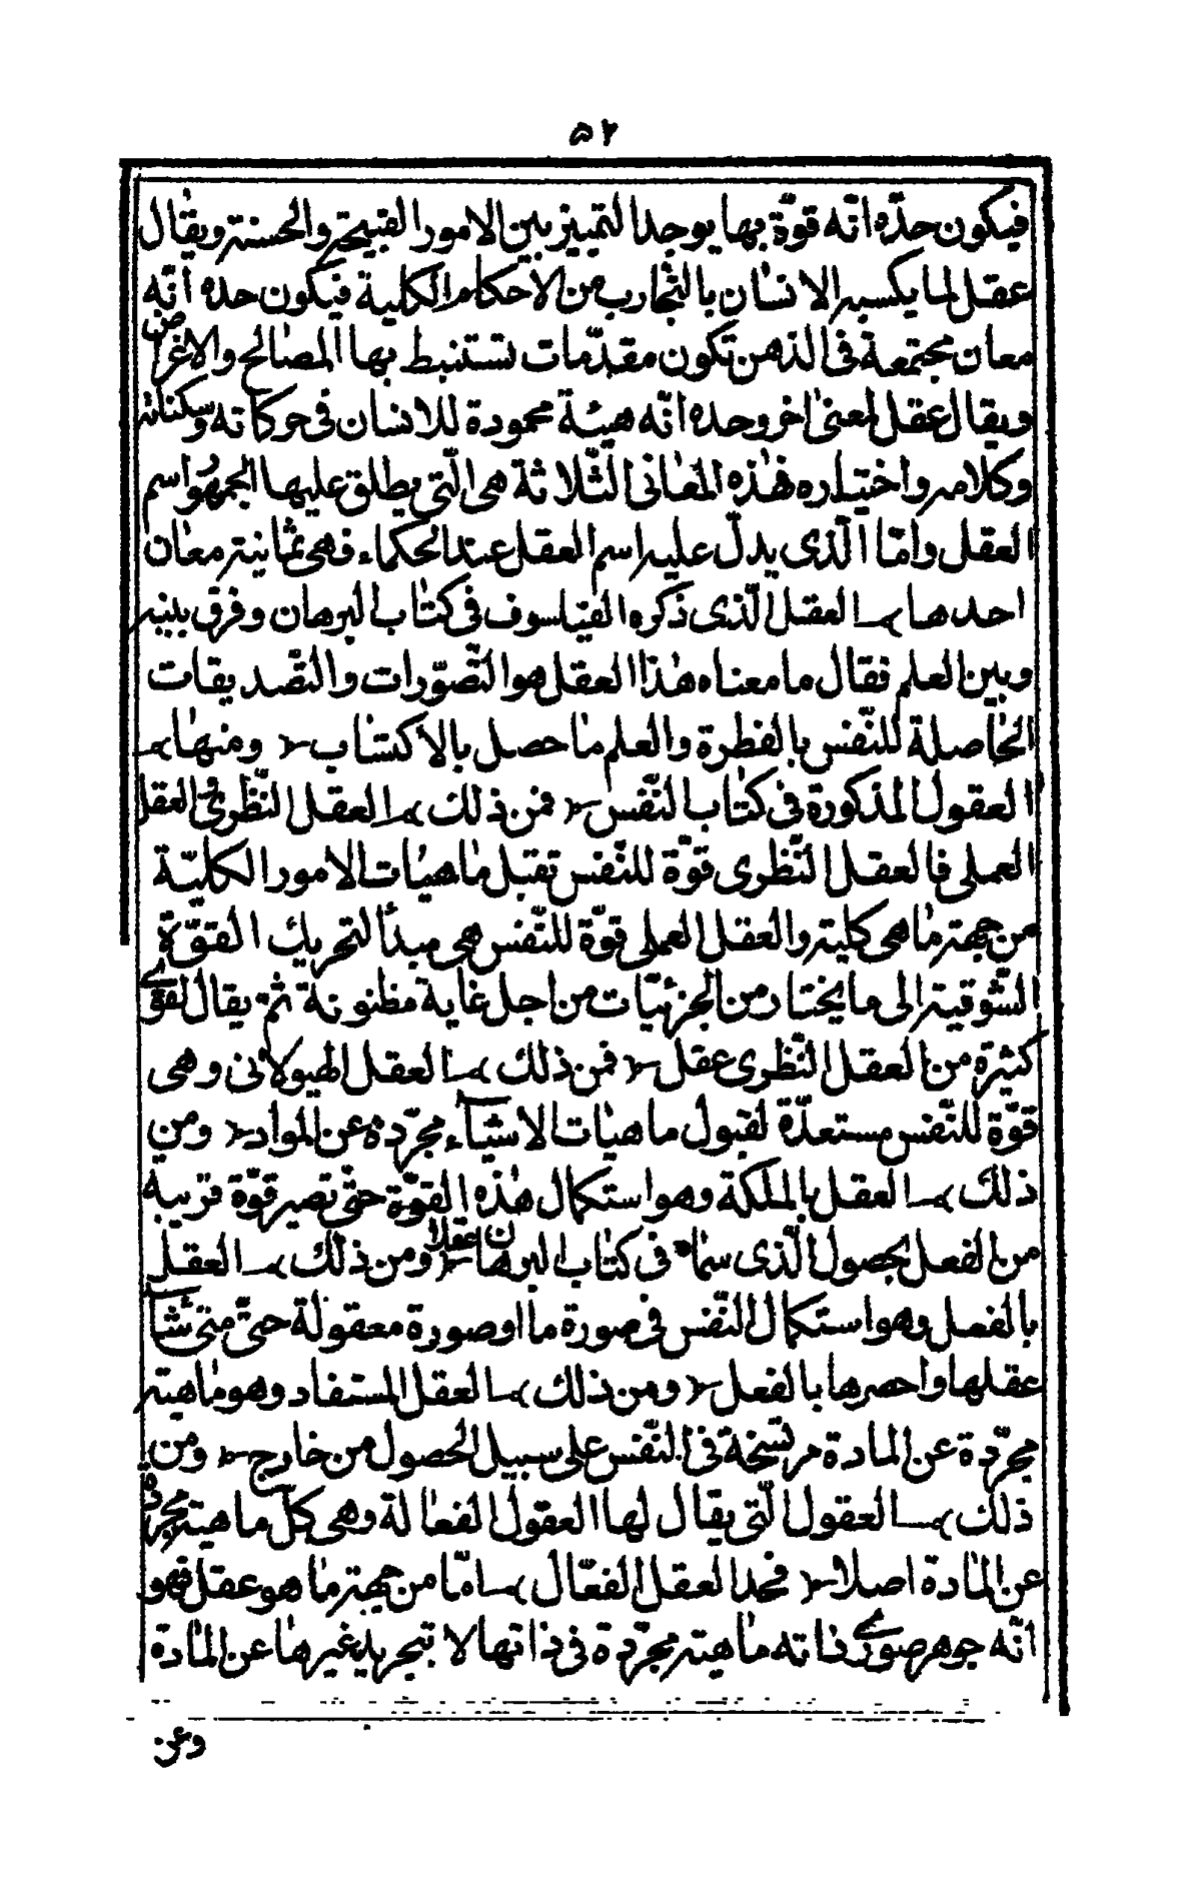 ٥٢
فيكون حدّه انّه قوّة بها يوجد التمييز بين الامور القبيحة والحسنة ويقال
عقل لما يكسبه الانسان بالتجارب من الاحكام الكلية فيكون حده انّه
معان مجتمعة فى الذهن تكون مقدّمات تستنبط بها المصالح والاغراض
ويقال عقل لمعنى اخر وحده انّه هيئة محمودة للانسان فى حركاته وسكناته
وكلامه واختياره فهذه المعانى الثّلاثة هى الّتى يطلق عليها الجمهور اسم
العقل وامّا الّذى يدلّ عليه اسم العقل عند الحكماء فهى ثمانية معان
احدها العقل الّذى ذكره الفيلسوف فى كتاب البرهان وفرق بينه
وبين العلم فقال ما معناه هذا العقل هو التّصوّرات والتّصديقات
الحاصلة للنّفس بالفطرة والعلم ما حصل بالاكتساب ومنها
العقول المذكورة فى كتاب النّفس فمن ذلك العقل النّظرى والعقل
العملى فالعقل النّظرى قوّة للنّفس تقبل ماهيات الامور الكليّة
من جهة ما هى كلية والعقل العملى قوّة للنّفس هى مبدأ لتحريك القوّة
الشّوقية الى ما يختار من الجزئيّات من اجل غاية مظنونة ثمّ يقال لقوى
كثيرة من العقل النّظرى عقل فمن ذلك العقل الهيولانى وهى
قوّة للنّفس مستعدّة لقبول ماهيات الاشياء مجرّدة عن المواد ومن
ذلك العقل بالملكة وهو استكمال هذه القوّة حتّى تصير قوّة قريبة
من الفعل بحصول الّذى سماه فى كتاب البرهان عقلا ومن ذلك العقل
بالفعل وهو استكمال النّفس فى صورة ما او صورة معقولة حتّى متى شاء
عقلها واحصرها بالفعل ومن ذلك العقل المستفاد وهو ماهية
مجرّدة عن المادة مرتسخة فى النّفس على سبيل الحصول من خارج ومن
ذلك العقول الّتى يقال لها العقول الفعالة وهى كلّ ماهية مجردة
عن المادة اصلا فحد العقل الفعّال امّا من جهة ما هو عقل فهو
انّه جوهر صورى ذاته ماهية مجرّدة فى ذاتها لا بتجريد غيرها عن المادة
وعن